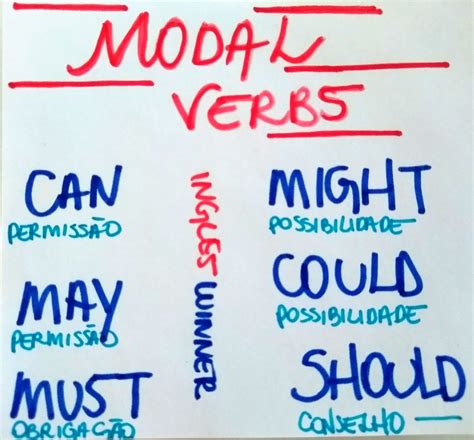 MODAL
VERBS
CAN
PERMISSÃO
MAY
PERMISSÃO
MUST
OBRIGAÇÃO
INGLES WINNER
MIGHT
POSSIBILIDADE
COULD
POSSIBILIDADE
SHOULD
CONSELHO